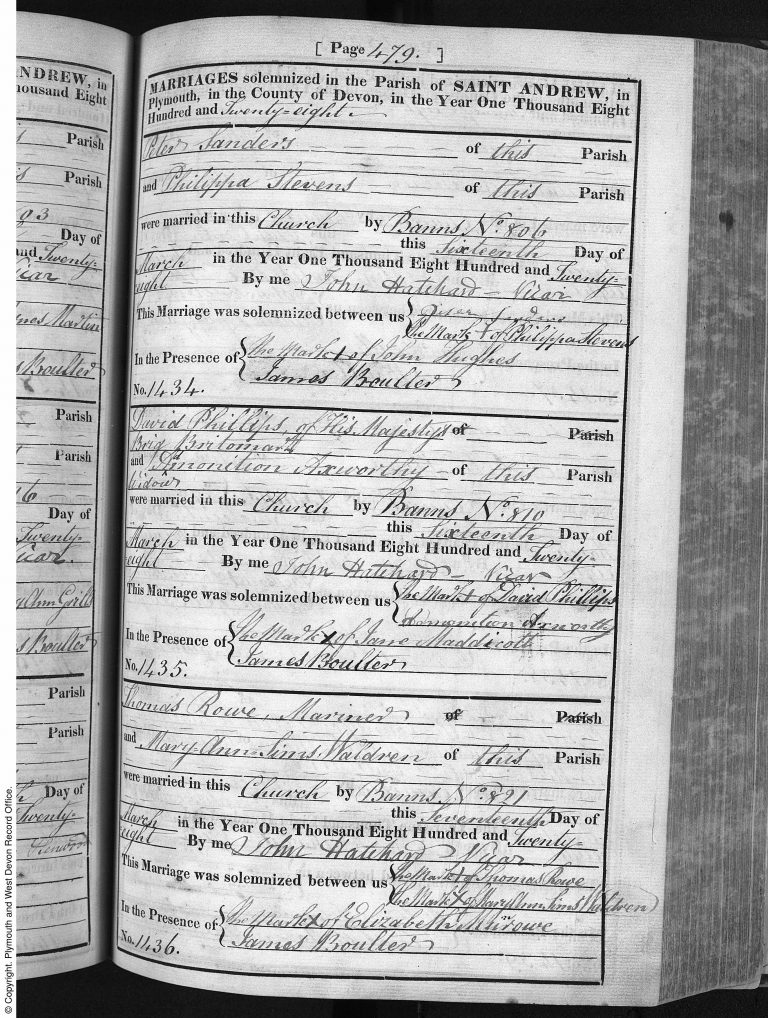 [ Page 479. ]
MARRIAGES solemnized in the Parish of SAINT ANDREW, in
Plymouth, in the County of Devon, in the Year One Thousand Eight
Hundred and Twenty-eight
Peter Sanders of this Parish
and Philippa Stevens of this Parish
were married in this Church by Banns No. 806
this Sixteenth Day of
March in the Year One Thousand Eight Hundred and Twenty-
eight By me John Hatchard - Vicar
This Marriage was solemnized between us
The Mark X of Philippa Stevens
In the Presence of The Mark X of John Hughes
James Boulter
No. 1434.
David Phillips, of His Majestys of Parish
Brig Britomart
and Admonition Axworthy of this Parish
Widow
were married in this Church by Banns No. 810
this Sixteenth Day of
March in the Year One Thousand Eight Hundred and Twenty-
eight By me John Hatchard - Vicar
This Marriage was solemnized between us The Mark X of David Phillips
Axworthy
In the Presence of The Mark X of Jane Maddicott
James Boulter
No. 1435.
Thomas Rowe, Mariner of Parish
and Mary-Ann-Sims Waldren of this Parish
were married in this Church by Banns No. 821
this Seventeenth Day of
March in the Year One Thousand Eight Hundred and Twenty-
eight By me John Hatchard Vicar
This Marriage was solemnized between us The Mark X of Thomas Rowe
The Mark X of Mary Ann Sims Waldren
In the Presence of The Mark X of Elizabeth
James Boulter
No. 1436.
NDREW, in
housand Eight
Parish
Parish
93
Day of
and Twenty-
icar
Martin
Boulter
Parish
Parish
16
Day of
Twenty-
icar.
Ann
Boulter
Parish
Parish
Day of
Twenty-
© Copyright. Plymouth and West Devon Record Office.